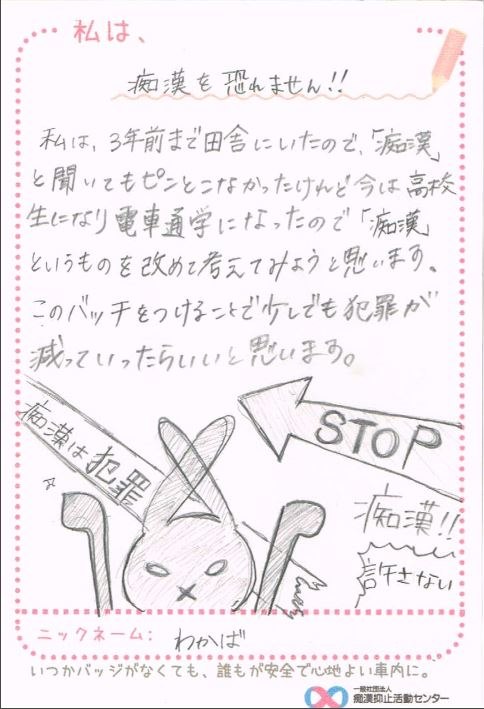 私は、
痴漢を恐れません!!
私は、3年前まで田舎にいたので、「痴漢」
と聞いてもピンとこなかったけれど今は高校
生になり電車通学になったので「痴漢」
というものを改めて考えてみようと思います。
このバッチをつけることで少しでも犯罪が
減っていったらいいと思います。
痴漢は犯罪
STOP
痴漢!!
許さない
ニックネーム:
わかば
いつかバッジがなくても、誰もが安全で心地よい車内に。
一般社団法人
痴漢抑止活動センター